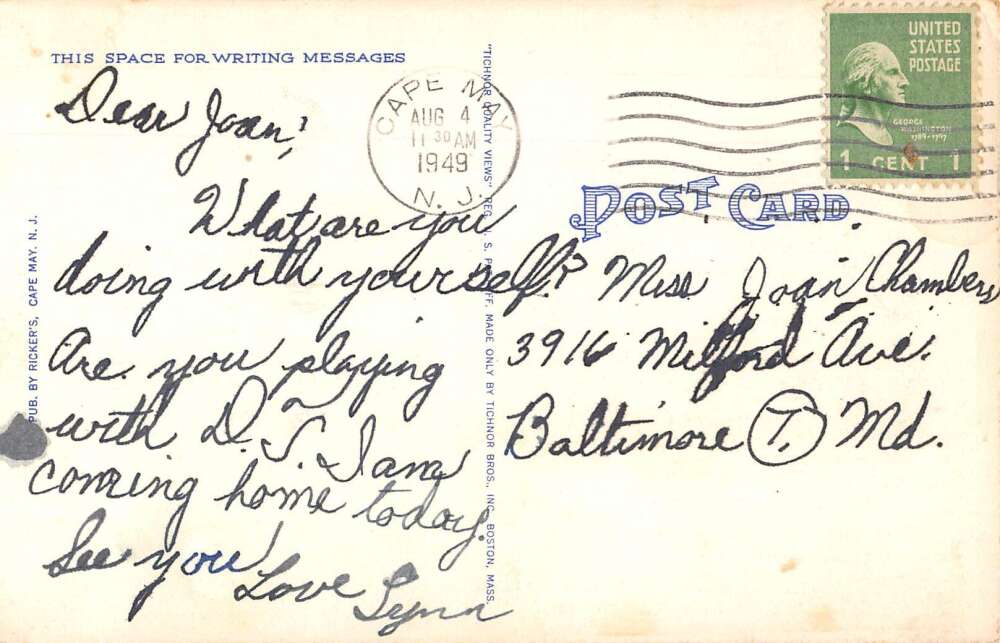 THIS SPACE FOR WRITING MESSAGES
Dear Joan!
What are you
doing with yourself?
Are you playing
with D. T. I am
coming home today.
See you!
Love Lynn
PUB. BY RICKER'S, CAPE MAY, N. J.
"TICHNOR QUALITY VIEWS" REG. U. S. PAT. OFF. MADE ONLY BY TICHNOR BROS., INC. BOSTON, MASS.
CAPE MAY
AUG 4
11 30 AM
1949
N. J.
UNITED
STATES
POSTAGE
GEORGE
WASHINGTON
1789-1797
1 CENT 1
POST CARD
Miss Joan Chambers
3916 Milford Ave.
Baltimore (7.) Md.